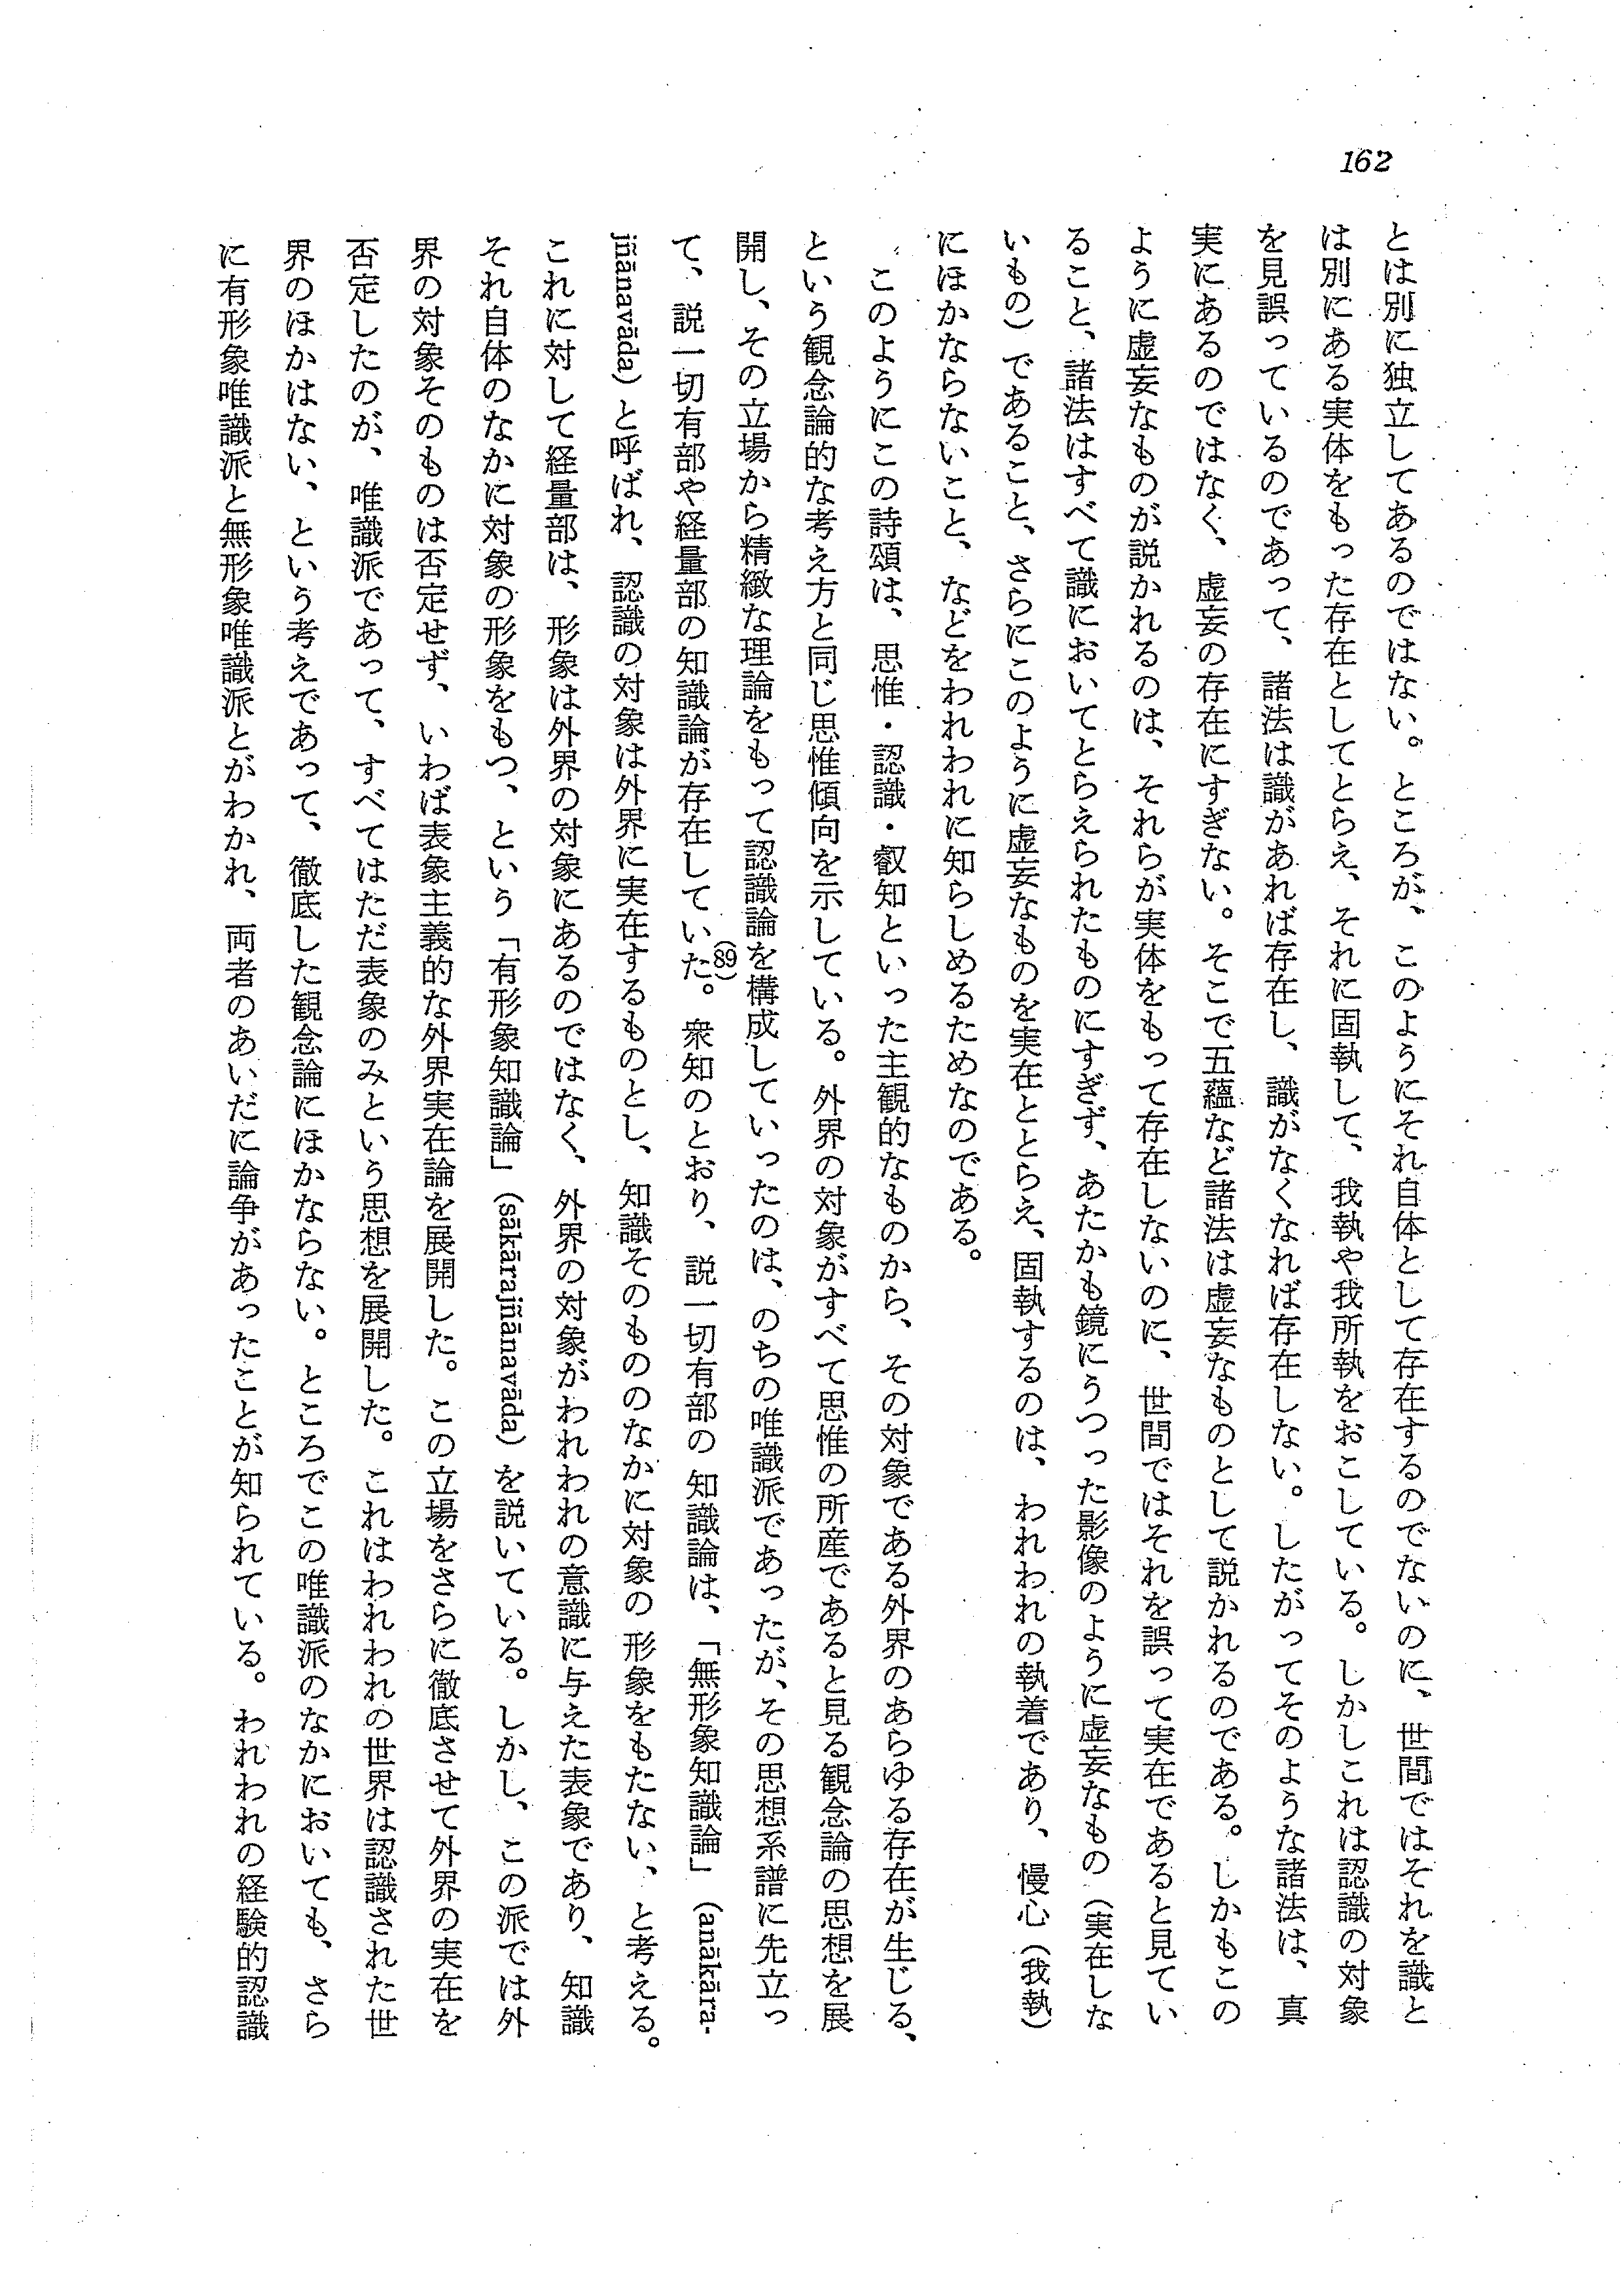 162
とは別に独立してあるのではない。ところが、このようにそれ自体として存在するのでないのに、世間ではそれを識と
は別にある実体をもった存在としてとらえ、それに固執して、我執や我所執をおこしている。しかしこれは認識の対象
を見誤っているのであって、諸法は識があれば存在し、識がなくなれば存在しない。したがってそのような諸法は、真
実にあるのではなく、虚妄の存在にすぎない。そこで五蘊など諸法は虚妄なものとして説かれるのである。しかもこの
ように虚妄なものが説かれるのは、それらが実体をもって存在しないのに、世間ではそれを誤って実在であると見てい
ること、諸法はすべて識においてとらえられたものにすぎず、あたかも鏡にうつった影像のように虚妄なもの（実在しな
いもの）であること、さらにこのように虚妄なものを実在ととらえ、固執するのは、われわれの執着であり、慢心（我執）
にほかならないこと、などをわれわれに知らしめるためなのである。
このようにこの詩頌は、思惟・認識・叡知といった主観的なものから、その対象である外界のあらゆる存在が生じる、
という観念論的な考え方と同じ思惟傾向を示している。外界の対象がすべて思惟の所産であると見る観念論の思想を展
開し、その立場から精緻な理論をもって認識論を構成していったのは、のちの唯識派であったが、その思想系譜に先立っ
て、説一切有部や経量部の知識論が存在していた。(89)衆知のとおり、説一切有部の知識論は、「無形象知識論」（anākāra-
jñānavāda）と呼ばれ、認識の対象は外界に実在するものとし、知識そのもののなかに対象の形象をもたない、と考える。
これに対して経量部は、形象は外界の対象にあるのではなく、外界の対象がわれわれの意識に与えた表象であり、知識
それ自体のなかに対象の形象をもつ、という「有形象知識論」（sākārajñānavāda）を説いている。しかし、この派では外
界の対象そのものは否定せず、いわば表象主義的な外界実在論を展開した。この立場をさらに徹底させて外界の実在を
否定したのが、唯識派であって、すべてはただ表象のみという思想を展開した。これはわれわれの世界は認識された世
界のほかはない、という考えであって、徹底した観念論にほかならない。ところでこの唯識派のなかにおいても、さら
に有形象唯識派と無形象唯識派とがわかれ、両者のあいだに論争があったことが知られている。われわれの経験的認識